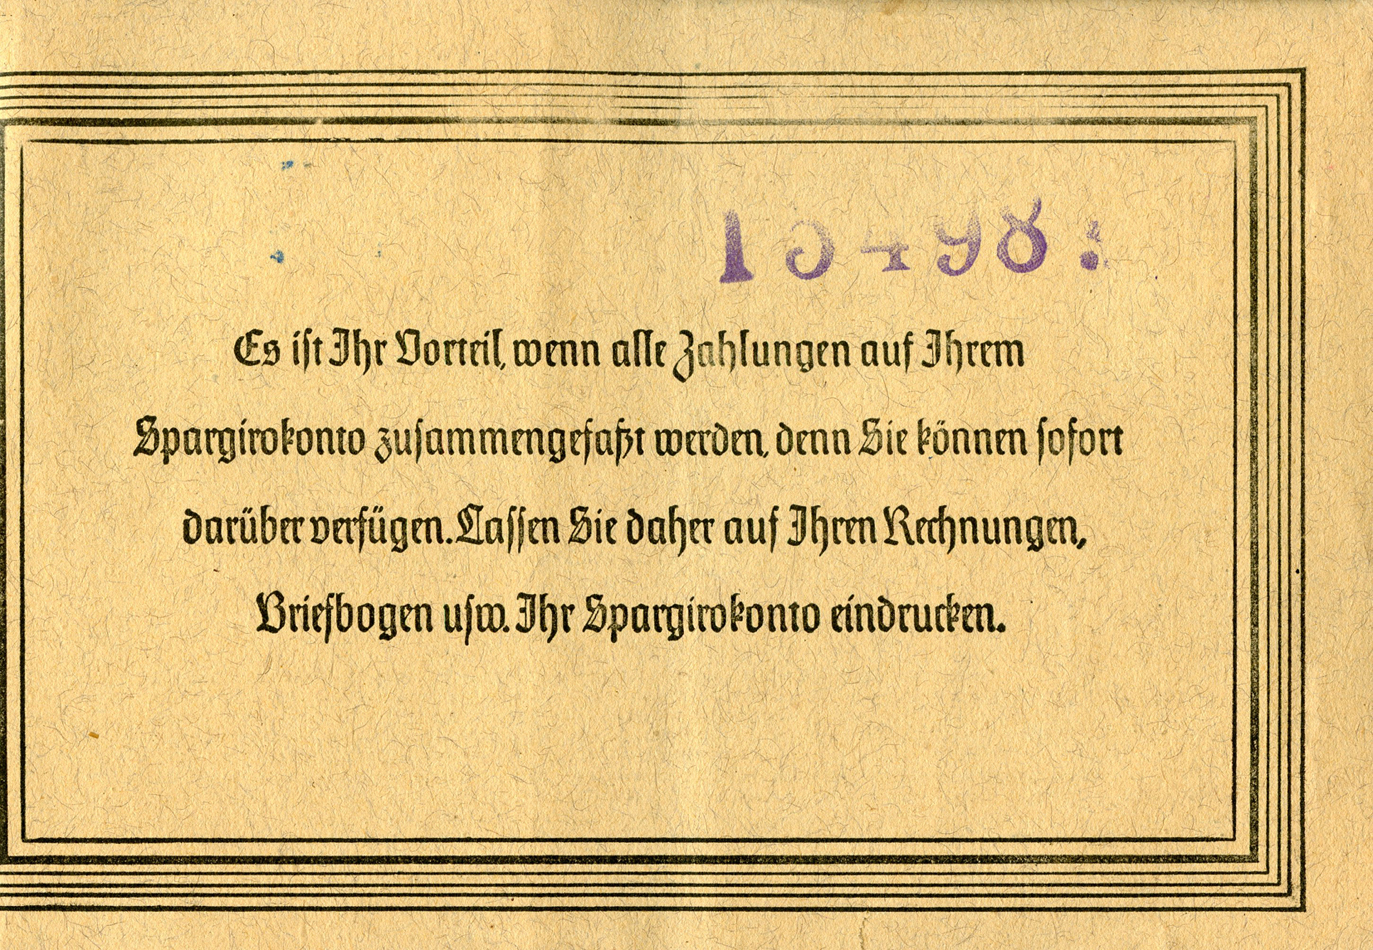 Es ist Ihr Vorteil, wenn alle Zahlungen auf Ihrem
Spargirokonto zusammengefaßt werden, denn Sie können sofort
darüber verfügen. Lassen Sie daher auf Ihren Rechnungen,
Briefbogen usw. Ihr Spargirokonto eindrucken.